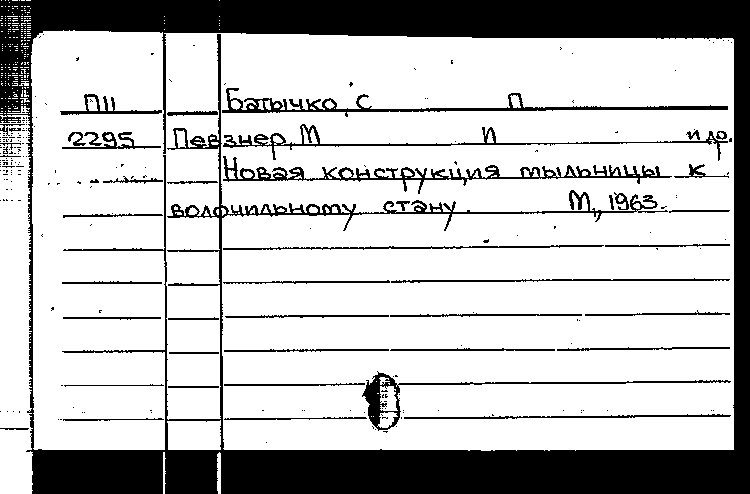 П11 Батычко, С П
2295 Певзнер, М И и др.
Новая конструкция мыльницы к
волочильному стану. М., 1963.